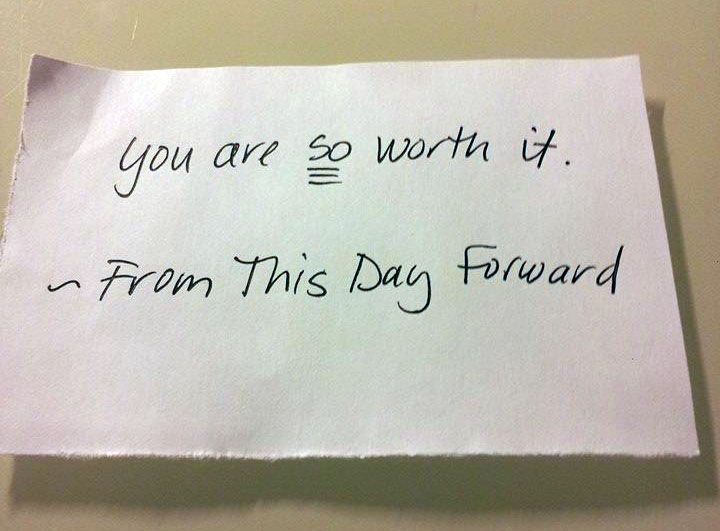 you are so worth it.
~ From This Day Forward